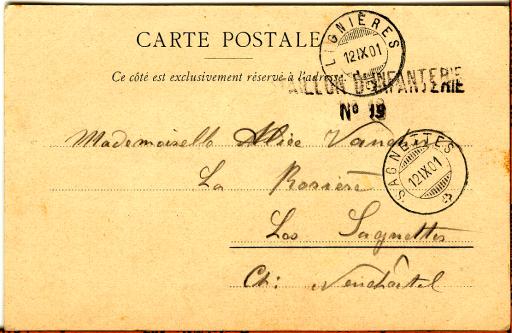 LIGNIÈRES
12 IX 01
CARTE POSTALE
Ce côté est exclusivement réservé à l'adresse
BATAILLON D'INFANTERIE
Nº 19
Mademoiselle Alice
SAGNETTES
12 IX 01
La Rosière
Les Sagnettes
Ct: Neuchâtel